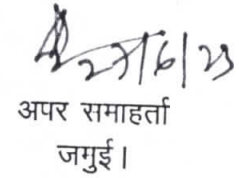 27/6/23
अपर समाहर्ता
जमुई।